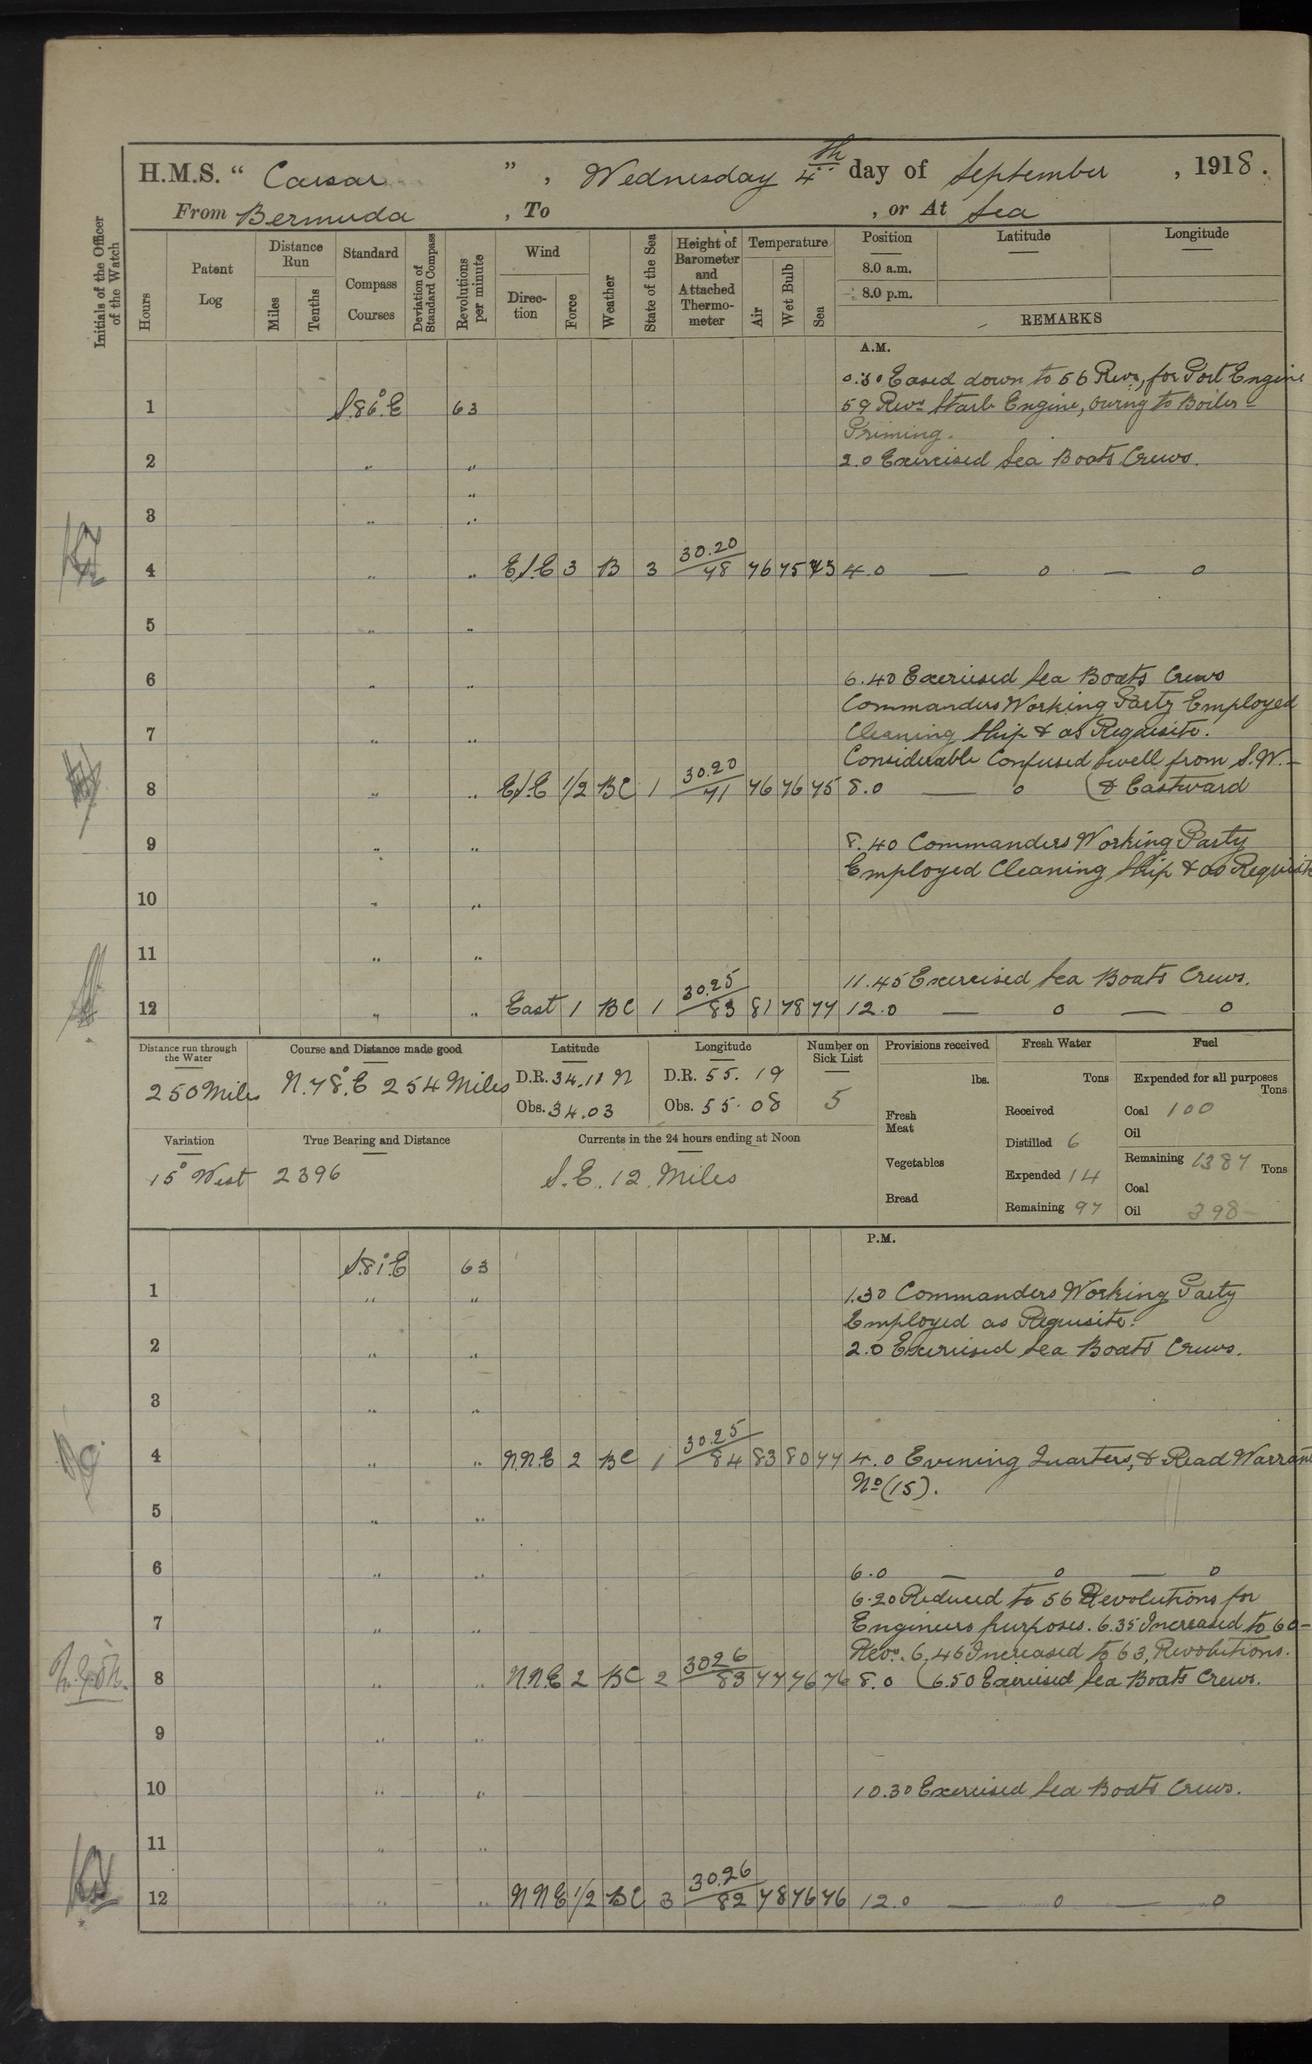 H.M.S. " Caesar " , Wednesday 4th day of September , 1918.
From Bermuda , To , or At Sea
Initials of the Officer of the Watch
Hours
Patent Log
Distance Run
Miles
Tenths
Standard Compass Courses
Deviation of Standard Compass
Revolutions per minute
Wind
Direction
Force
Weather
State of the Sea
Height of Barometer and Attached Thermometer
Temperature
Air
Wet Bulb
Sea
Position Latitude Longitude
8.0 a.m.
8.0 p.m.
REMARKS
A.M.
0.30 Eased down to 56 Revs, for Port Engine
1 S.86°.E 63 59 Revs Starb Engine, owing to Boiler-
Priming.
2 " " 2.0 Exercised Sea Boats Crews.
"
3 " "
4 " " E/S.E 3 B 3 30.20/78 76 75 73 4.0 — o — o
5 " "
6 " " 6.40 Exercised Sea Boats Crews
Commanders Working Party Employed
7 " " Cleaning Ship & as Requisite.
Considerable Confused Swell from S.W.-
8 " " E/S.E 1/2 BC 1 30.20/71 76 76 75 8.0 — o (& Eastward
9 " " 8.40 Commanders Working Party
Employed Cleaning Ship & as Requisite
10 " "
11 " "
11.45 Exercised Sea Boats Crews.
12 " " East 1 BC 1 30.25/83 81 78 77 12.0 — o — o
Distance run through the Water
250 Miles
Course and Distance made good
N.78°.E 254 Miles
Latitude
D.R. 34.11 N
Obs. 34.03
Longitude
D.R. 55. 19
Obs. 55. 08
Number on Sick List
5
Provisions received
lbs.
Fresh Meat
Vegetables
Bread
Fresh Water
Tons
Received
Distilled 6
Expended 14
Remaining 97
Fuel
Expended for all purposes
Tons
Coal 100
Oil
Remaining 1387 Tons
Coal
Oil 398
Variation
15° West
True Bearing and Distance
2396
Currents in the 24 hours ending at Noon
S.E. 12. Miles
P.M.
S.81°.E 63
1 " " 1.30 Commanders Working Party
Employed as Requisite.
2 " " 2.0 Exercised Sea Boats Crews.
3 " "
4 " " N.N.E 2 BC 1 30.25/84 83 80 77 4.0 Evening Quarters, & Read Warrant
No (15).
5 " "
6 " " 6.0 — o — o
6.20 Reduced to 56 Revolutions for
7 " " Engineers purposes. 6.35 Increased to 60-
Revs. 6.46 Increased to 63, Revolutions.
8 " " N.N.E 2 BC 2 30.26/83 77 76 76 8.0 (6.50 Exercised Sea Boats Crews.
9 " "
10 " " 10.30 Exercised Sea Boats Crews.
11 " "
12 " " N N E 1/2 BC 3 30.26/82 78 76 76 12.0 — o — o